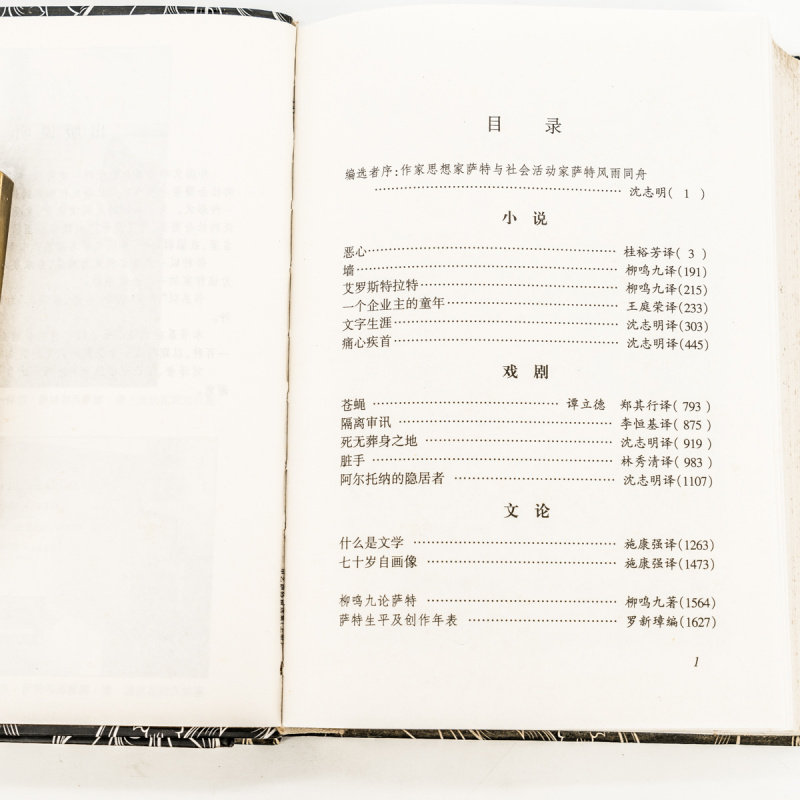 目 录
编选者序:作家思想家萨特与社会活动家萨特风雨同舟
沈志明( 1 )
小 说
恶心 桂裕芳译( 3 )
墙 柳鸣九译(191)
艾罗斯特拉特 柳鸣九译(215)
一个企业主的童年 王庭荣译(233)
文字生涯 沈志明译(303)
痛心疾首 沈志明译(445)
戏 剧
苍蝇 谭立德 郑其行译( 793 )
隔离审讯 李恒基译( 875 )
死无葬身之地 沈志明译( 919 )
脏手 林秀清译( 983 )
阿尔托纳的隐居者 沈志明译(1107)
文 论
什么是文学 施康强译(1263)
七十岁自画像 施康强译(1473)
柳鸣九论萨特 柳鸣九著(1564)
萨特生平及创作年表 罗新璋编(1627)
1